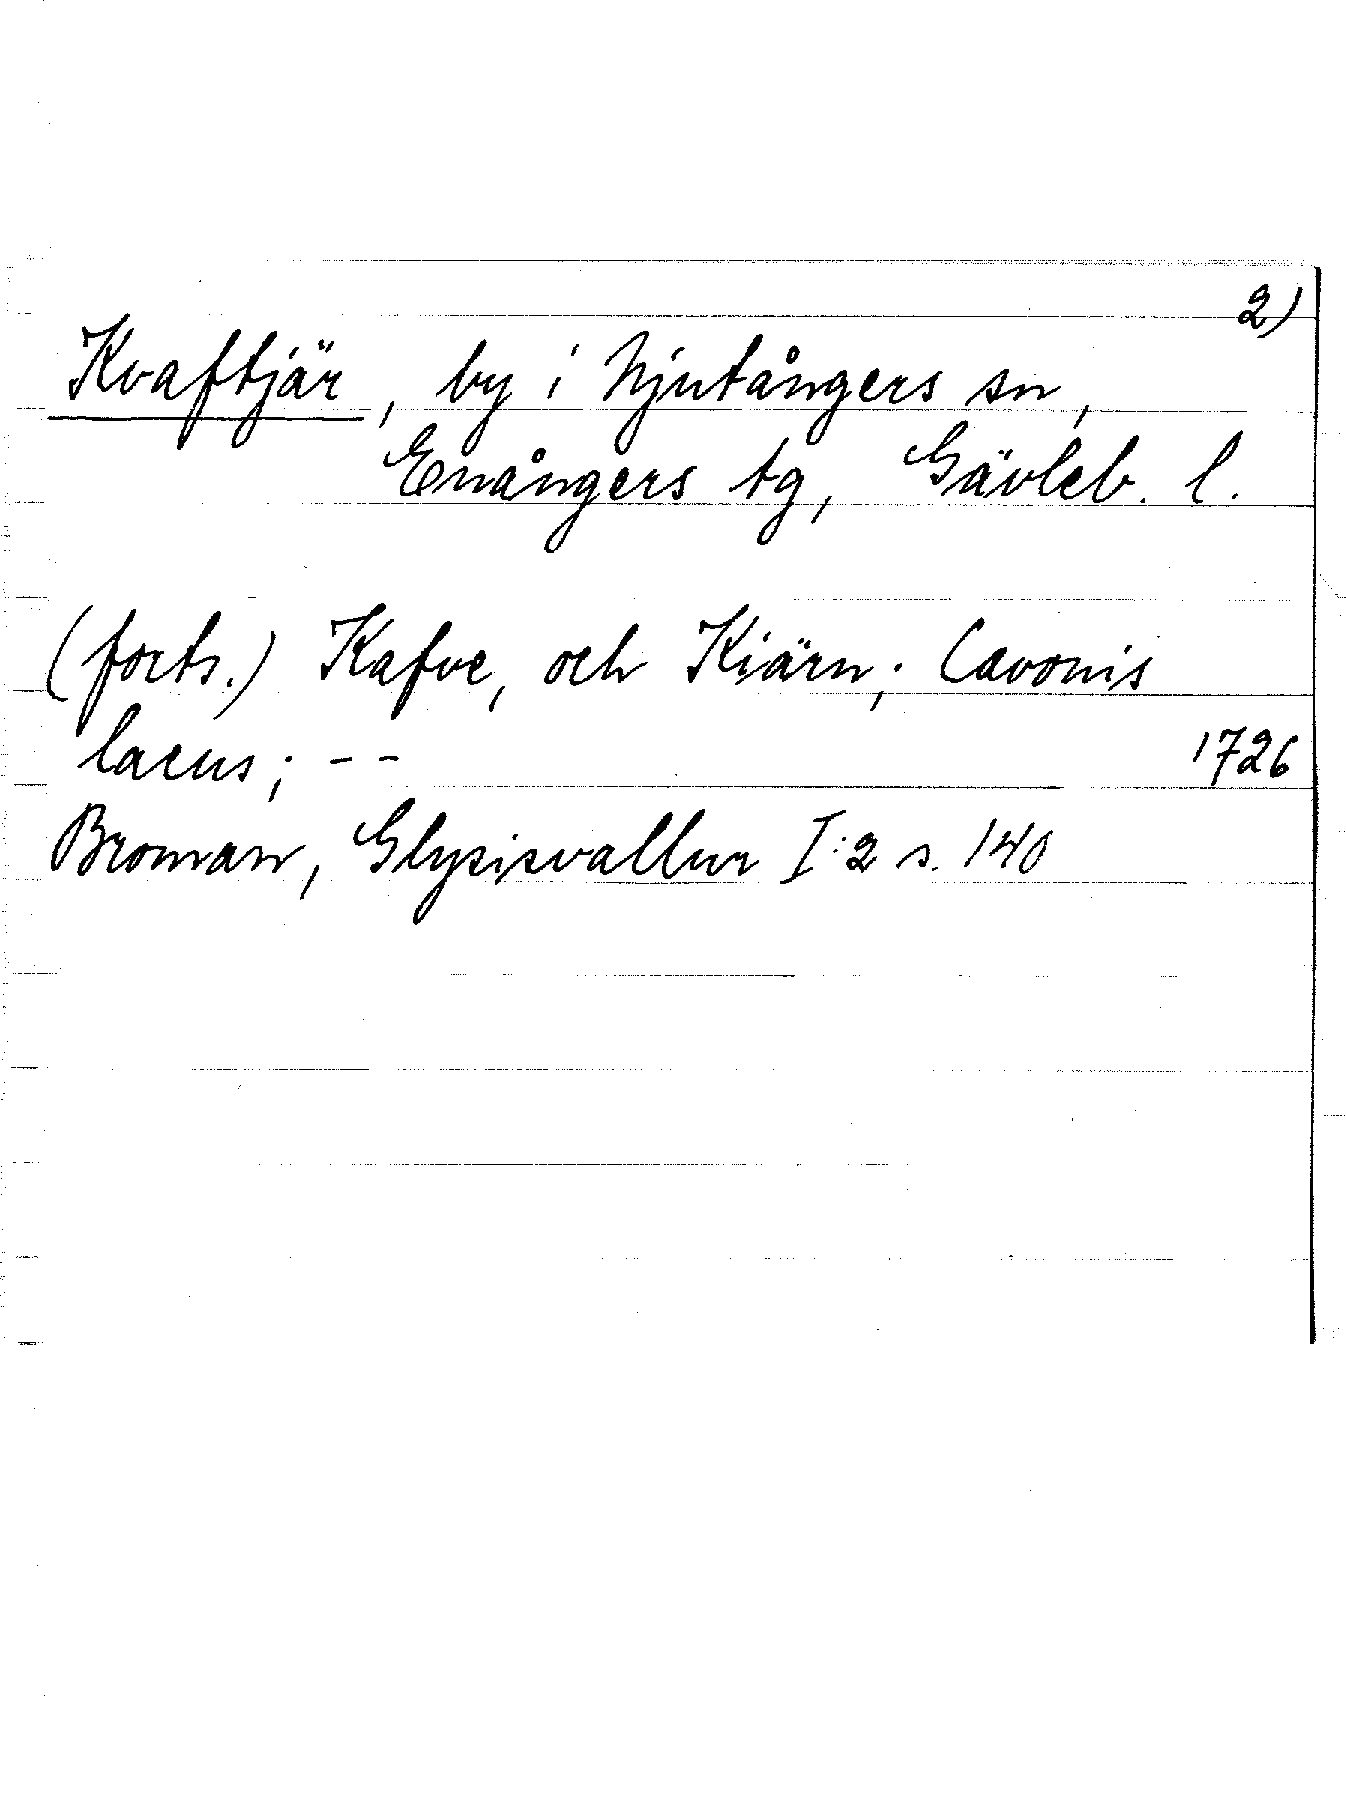 2)
Kvaftjär, by i Njutångers sn,
Enångers tg, Gävleb. l.
(forts.) Kafve, och Kiärn; Cavonis
lacus; - -
1726
Broman, Glysisvallur I:2 s. 140